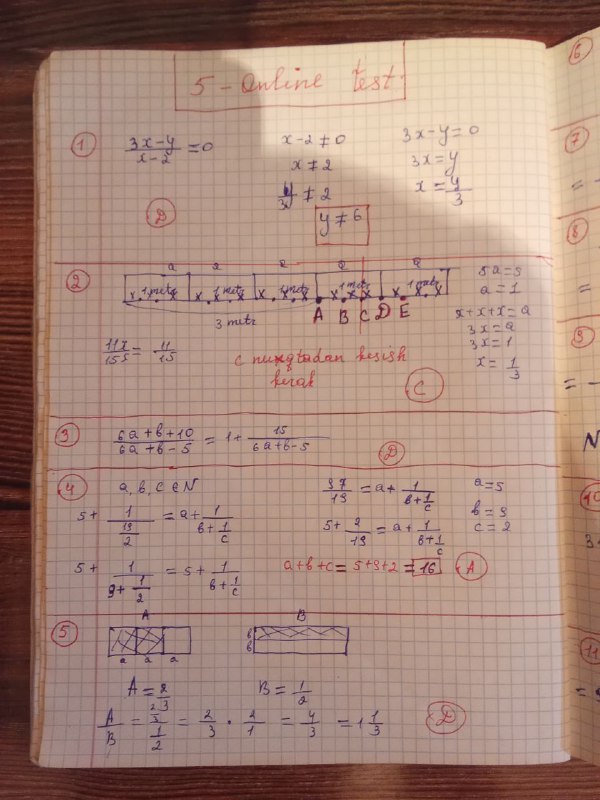 5 - Online test
① (3x-y)/(x-2) = 0
x-2 ≠ 0
x ≠ 2
y/3 ≠ 2
y ≠ 6
3x-y = 0
3x = y
x = y/3
D
② a a a a a
x 1 metr x x 1 metr x x 1 metr x x 1 metr x x 1 metr x
3 metr A B C D E
11x/15 = 11/15
C nuqtadan kesish
kerak
5a = 5
a = 1
x+x+x = a
3x = a
3x = 1
x = 1/3
C
③ (6a+b+10)/(6a+b-5) = 1 + 15/(6a+b-5)
D
④ a, b, c ∈ N
5 + 1/(19/2) = a + 1/(b + 1/c)
5 + 1/(9 + 1/2) = 5 + 1/(b + 1/c)
97/19 = a + 1/(b + 1/c)
5 + 2/19 = a + 1/(b + 1/c)
a = 5
b = 9
c = 2
a+b+c = 5+9+2 = 16 A
⑤ A B
a a a
b
b
A = 2/3 B = 1/2
A/B = (2/3)/(1/2) = 2/3 · 2/1 = 4/3 = 1 1/3 D
6
7
8
9
N
10
11